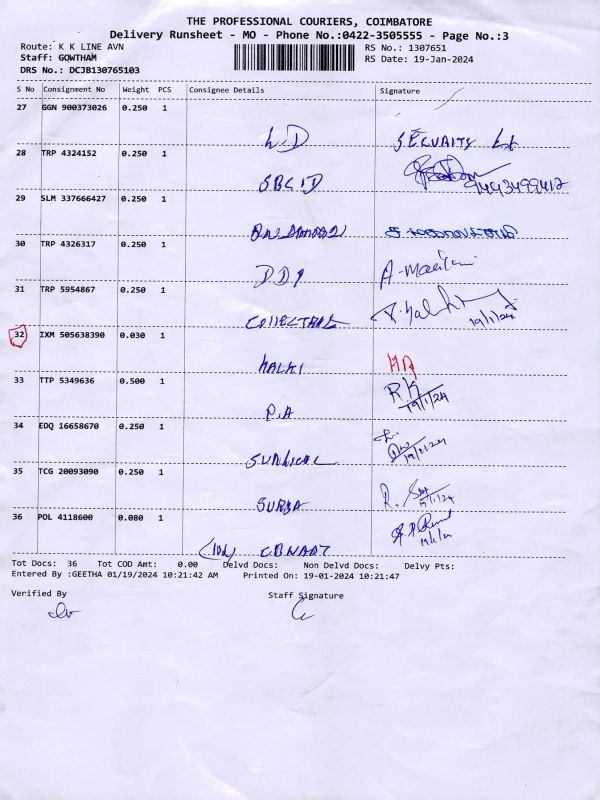 THE PROFESSIONAL COURIERS, COIMBATORE
Delivery Runsheet - MO - Phone No.:0422-3505555 - Page No.:3
Route: K K LINE AVN
RS No.: 1307651
Staff: GOWTHAM
RS Date: 19-Jan-2024
DRS No.: DCJB130765103
S No Consignment No Weight PCS Consignee Details Signature
27 GGN 900373026 0.250 1
SECURITY
28 TRP 4324152 0.250 1
SBCID 9443499417
29 SLM 337666427 0.250 1
30 TRP 4326317 0.250 1
31 TRP 5954867 0.250 1
19/1/24
32 IXM 505638390 0.030 1
KALKI
33 TTP 5349636 0.500 1
P.A RK 19/1/24
34 EDQ 16658670 0.250 1
35 TCG 20093090 0.250 1
SURYA
36 POL 4118600 0.080 1
Tot Docs: 36 Tot COD Amt: 0.00 Delvd Docs: Non Delvd Docs: Delvy Pts:
Entered By :GEETHA 01/19/2024 10:21:42 AM Printed On: 19-01-2024 10:21:47
Verified By Staff Signature